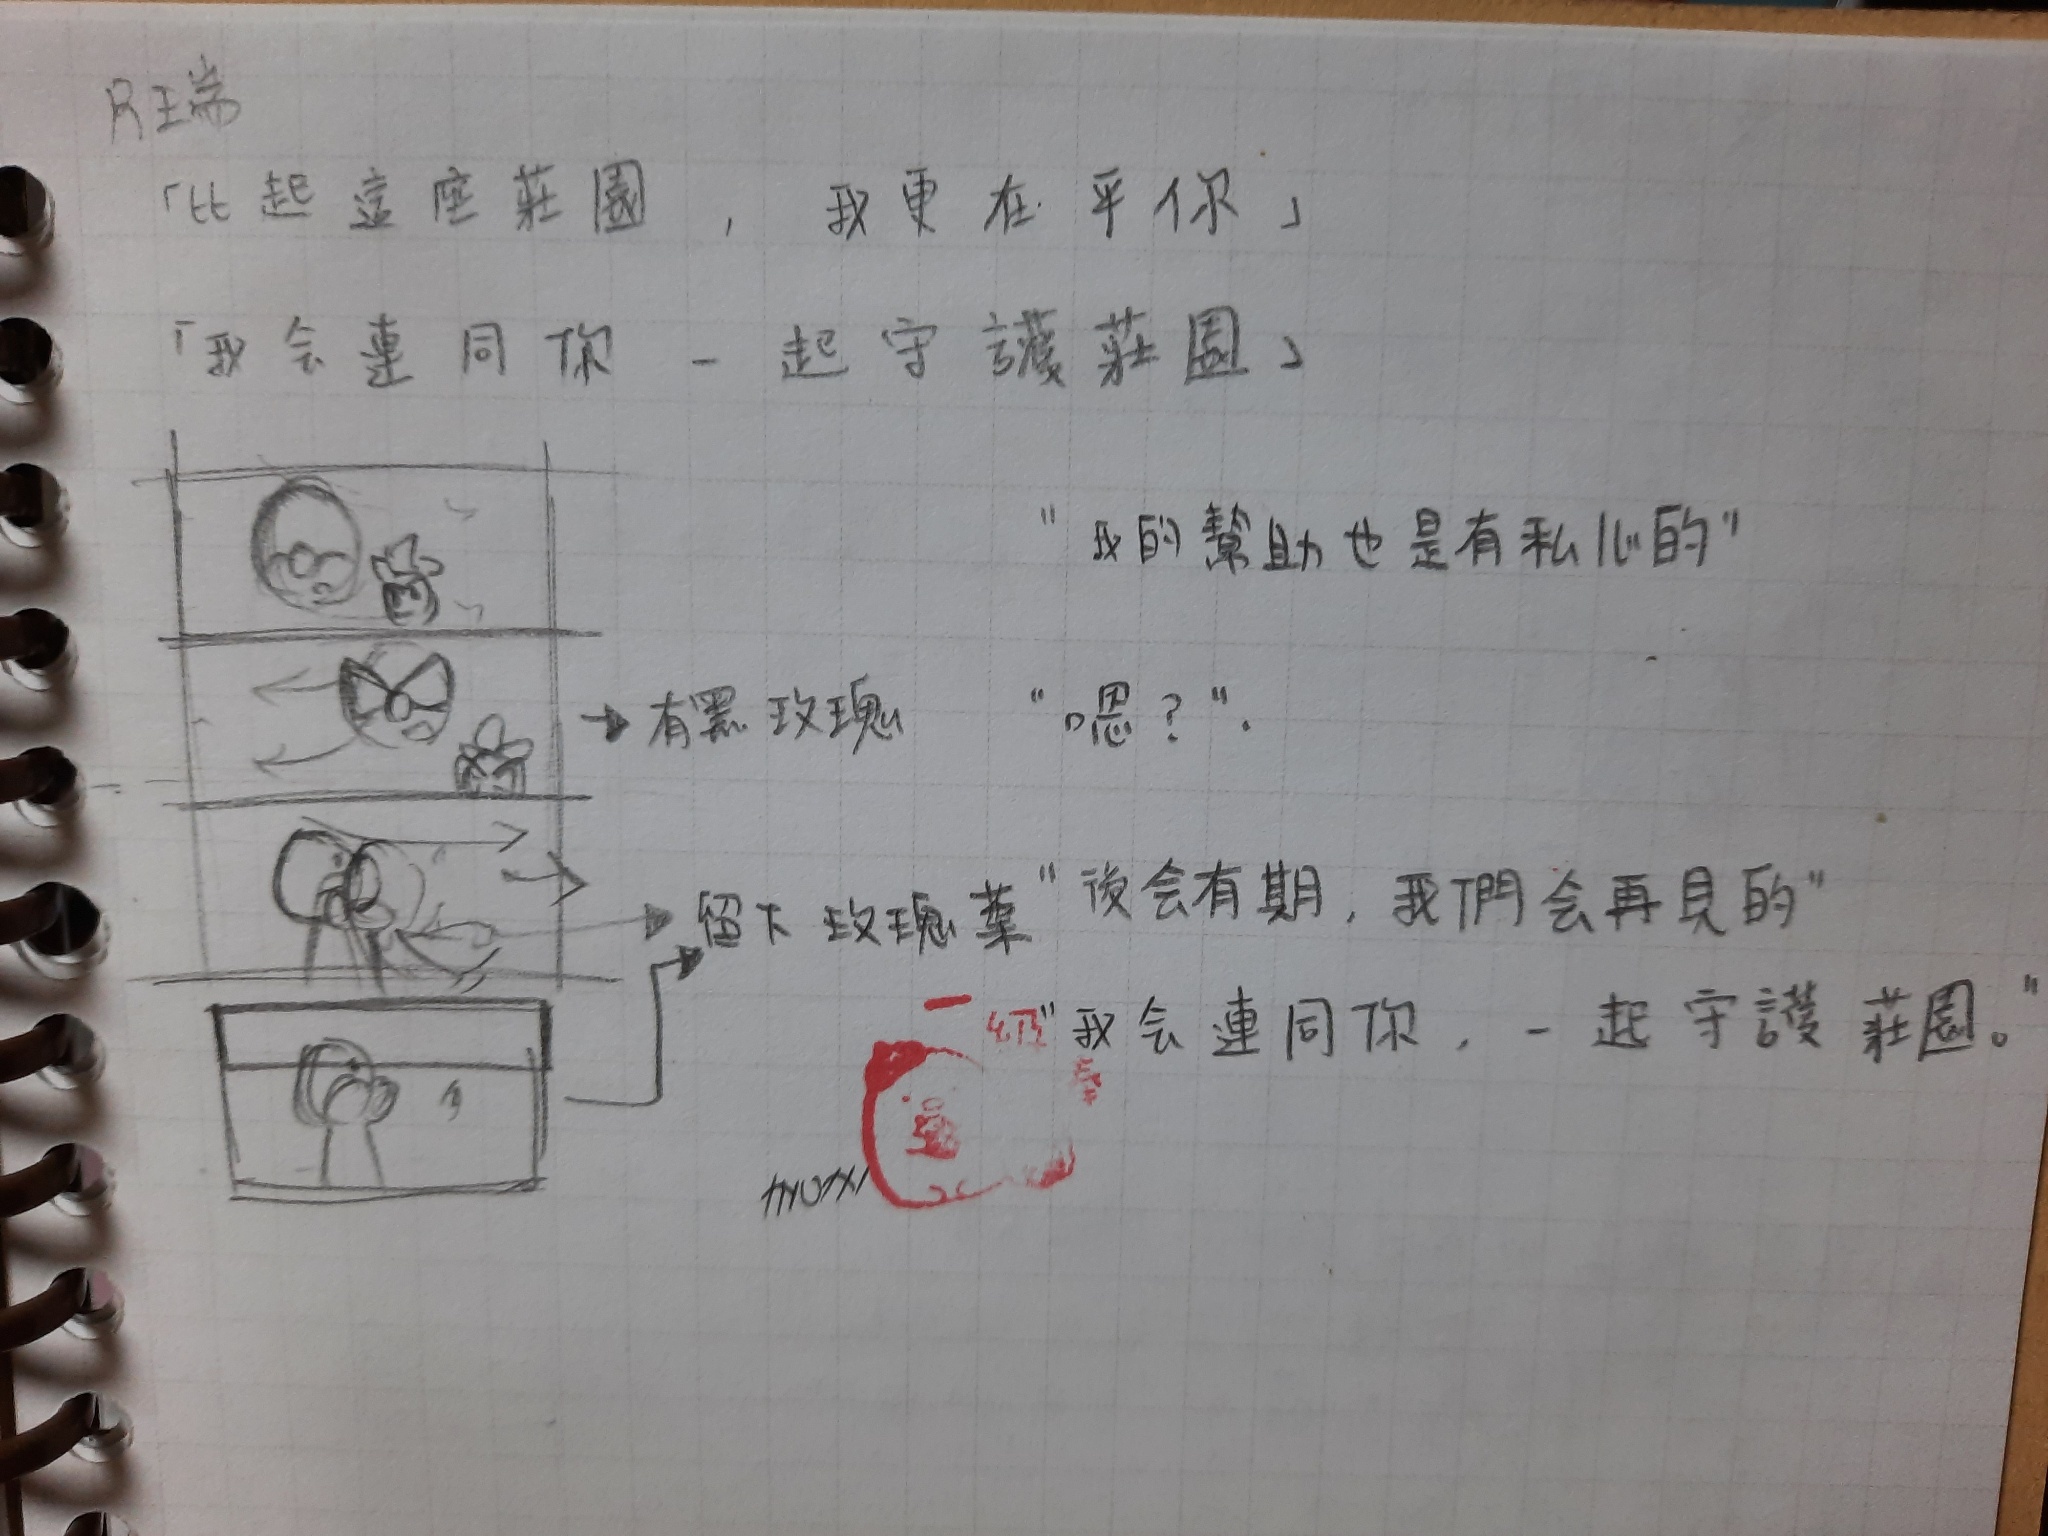 R瑞
「比起這座莊園，我更在乎你」
「我会連同你一起守護莊園」
"我的幫助也是有私心的"
有黑玫瑰 "嗯？".
留下玫瑰葉 "後会有期，我們会再見的"
"我会連同你，一起守護莊園。"